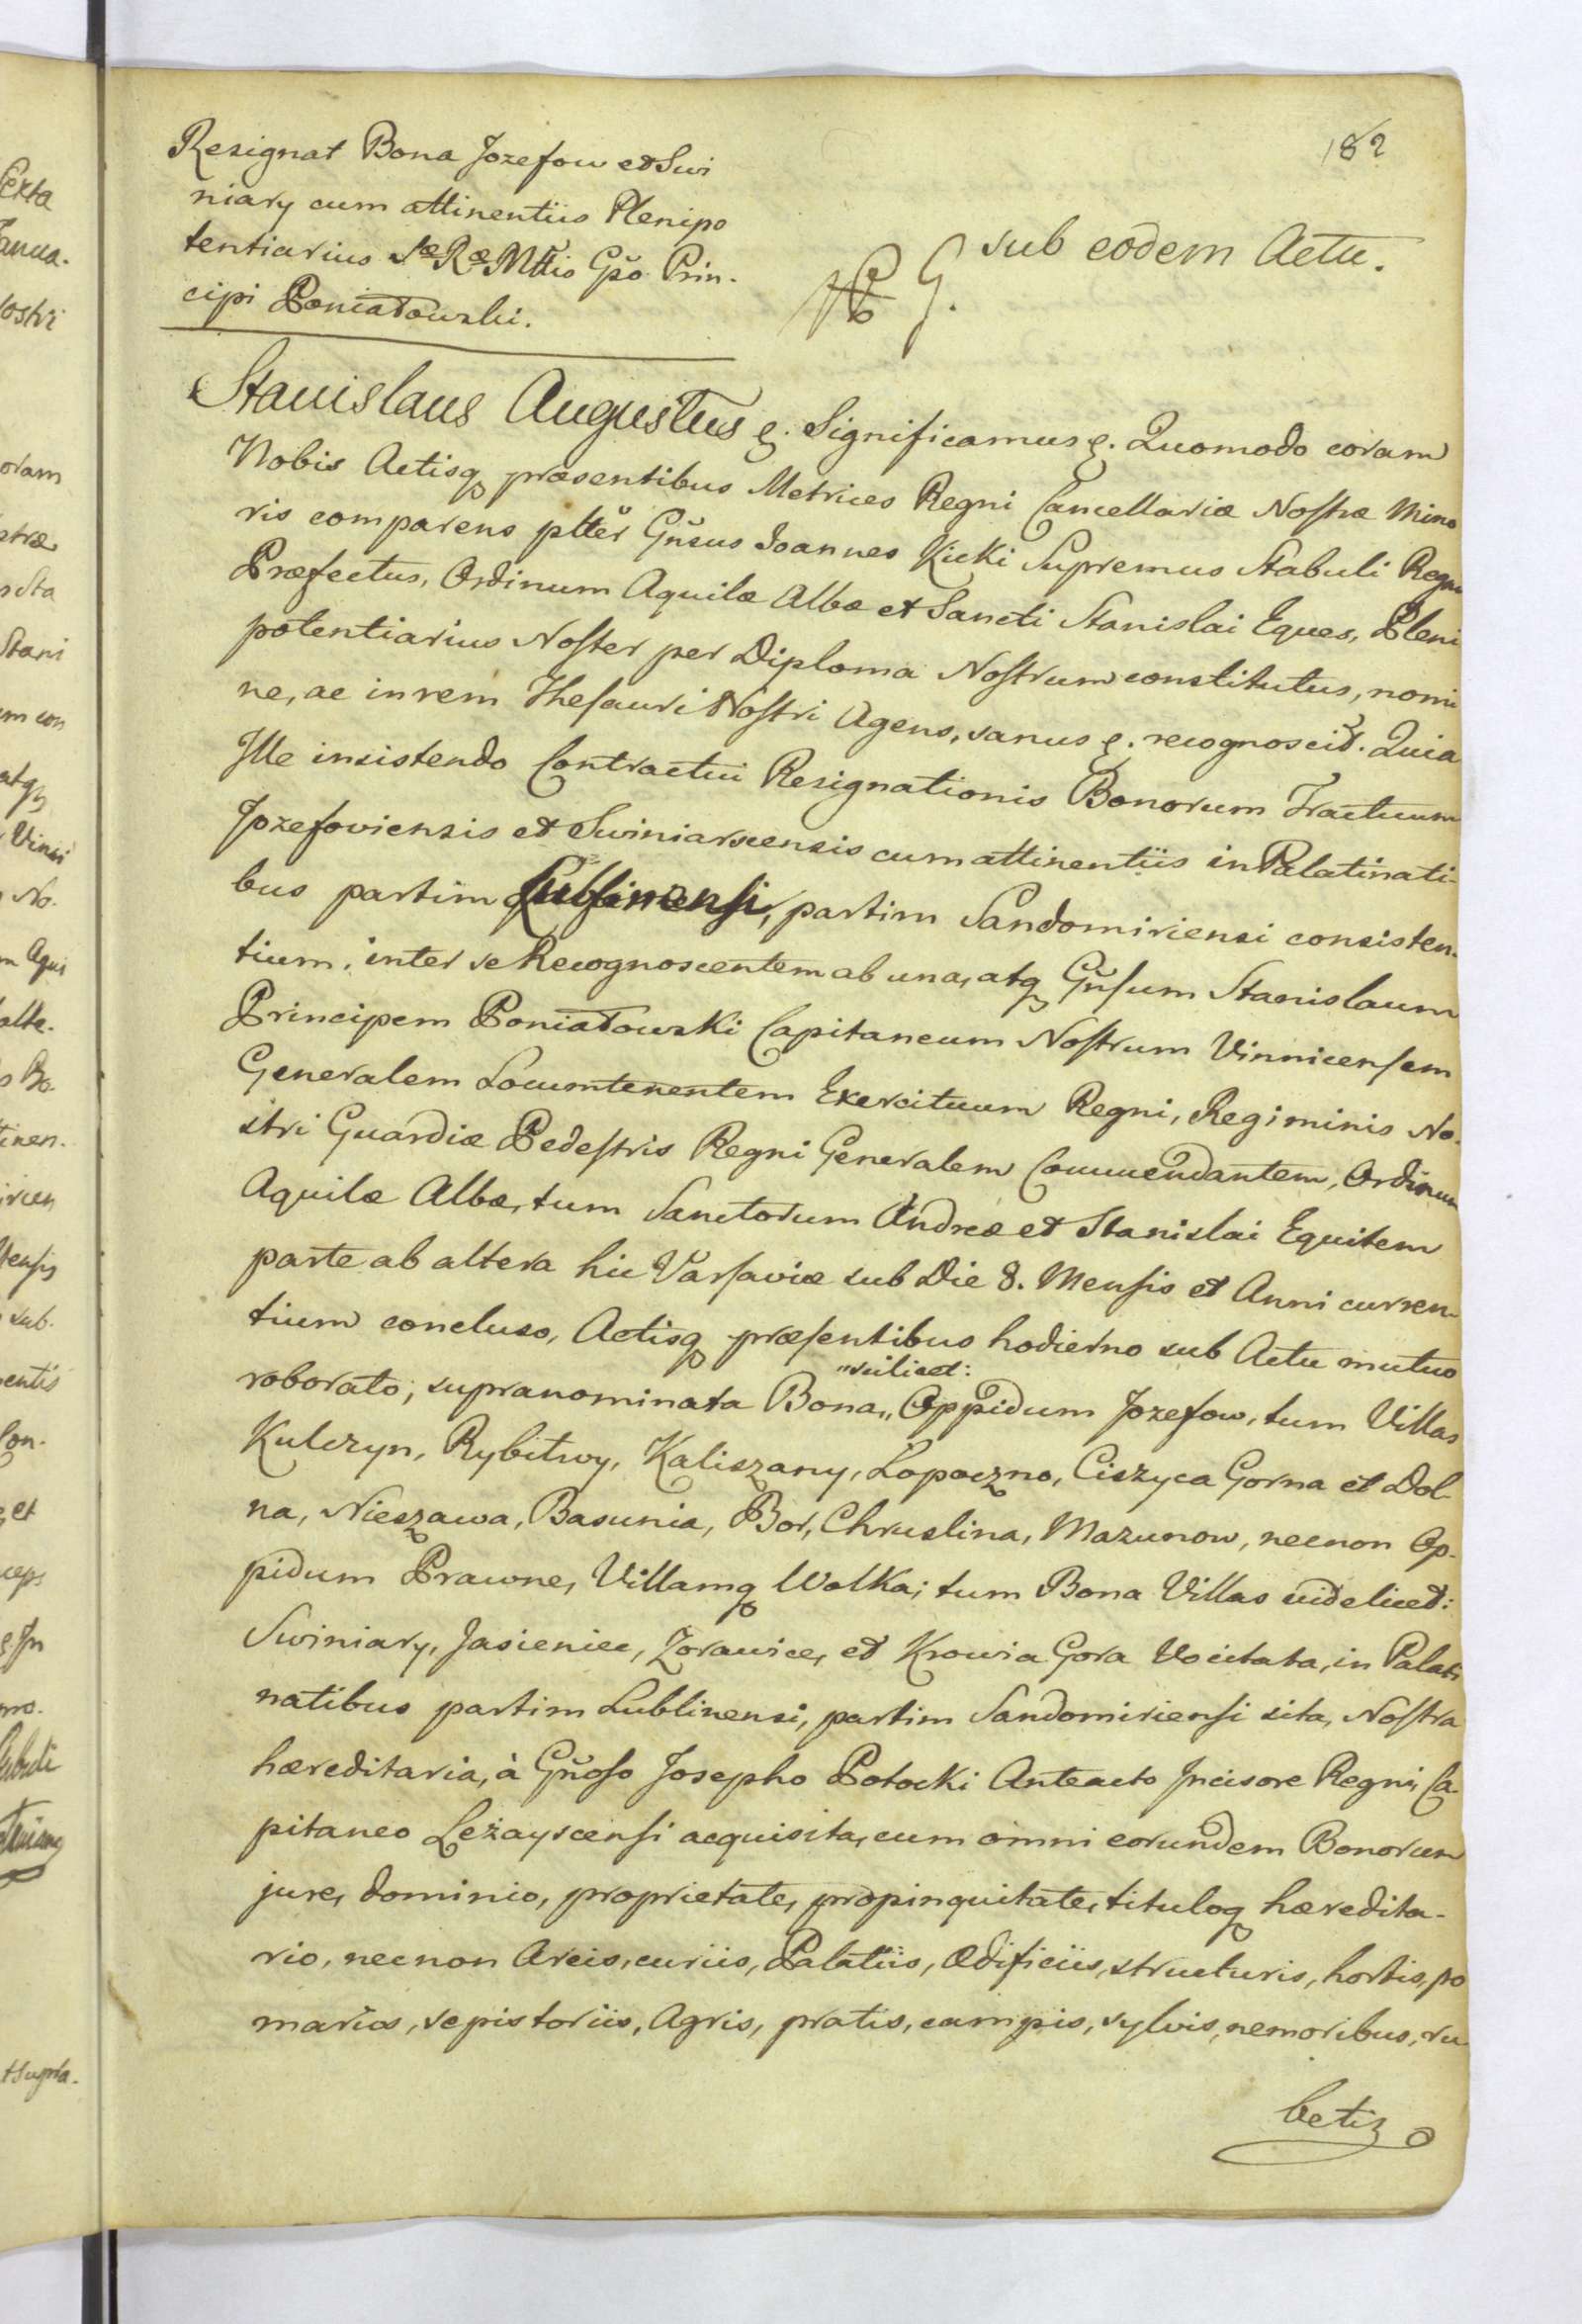 182
Resignat Bona Jozefow et Swi
niary cum attinentiis Plenipo
tentiarius Sæ Ræ Mttis Gso Prin-
cipi Poniatowski.
sub eodem Actu.
Stanislaus Augustus &. Significamus &. Quomodo coram
Nobis Actisq præsentibus Metrices Regni Cancellariæ Nostræ Mino
ris comparens pltter Gnsus Joannes Kicki Supremus Stabuli Regni
Præfectus, Ordinum Aquilæ Albæ et Sancti Stanislai Eques, Pleni
potentiarius Noster per Diploma Nostrum constitutus, nomi
ne, ac in rem Thesauri Nostri Agens, sanus &. recognoscit. Quia
Ille insistendo Contractui Resignationis Bonorum Tractuum
Jozefoviensis et Swiniarscensis cum attinentiis in Palatinati-
bus partim Lublinensi, partim Sandomiriensi consisten-
tium, inter se Recognoscentem ab una, atq Gnsum Stanislaum
Principem Poniatowski Capitaneum Nostrum Vinnicensem
Generalem Locumtenentem Exercituum Regni, Regiminis No-
stri Guardiæ Pedestris Regni Generalem Commendantem, Ordinum
Aquilæ Albæ, tum Sanctorum Andreæ et Stanislai Equitem
parte ab altera hic Varsaviæ sub Die 8. Mensis et Anni curren-
tium concluso, Actisq præsentibus hodierno sub Actu mutuo
"scilicet:
roborato; supranominata Bona,, Oppidum Jozefow, tum Villas
Kulczyn, Rybitwy, Kaliszany, Lopoczno, Ciszyca Gorna et Dol-
na, Nieszawa, Basunia, Bor, Chruslina, Mazunow, necnon Op-
pidum Prawne, Villamq Wolka; tum Bona Villas videlicet:
Swiniary, Jasieniec, Zorawice, et Krowia Gora Vocitata, in Palati
natibus partim Lublinensi, partim Sandomiriensi sita, Nostra
hæreditaria, à Gnoso Josepho Potocki Anteacto Incisore Regni, Ca-
pitaneo Leżayscensi acquisita, cum omni eorundem Bonorum
jure, dominio, proprietate, propinquitate, tituloq hæredita-
rio, necnon Arcis, curiis, Palatiis, Ædificiis, structuris, hortis, po
mariis, sepistoriis, Agris, pratis, campis, sylvis, nemoribus, ru
betis